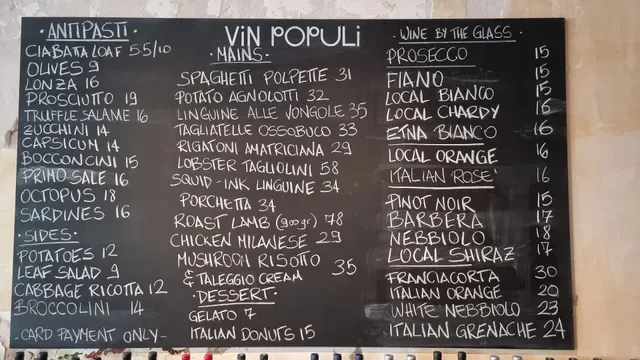 VIN POPULI
·ANTIPASTI·
CIABATA LOAF 5.5/10
OLIVES 9
LONZA 16
PROSCIUTTO 19
TRUFFLE SALAME 16
ZUCCHINI 14
CAPSICUM 14
BOCCONCINI 15
PRIMO SALE 16
OCTOPUS 18
SARDINES 16
·SIDES·
POTATOES 12
LEAF SALAD 9
CABBAGE RICOTTA 12
BROCCOLINI 14
-CARD PAYMENT ONLY-
·MAINS·
SPAGHETTI POLPETTE 31
POTATO AGNOLOTTI 32
LINGUINE ALLE VONGOLE 35
TAGLIATELLE OSSOBUCO 33
RIGATONI AMATRICIANA 29
LOBSTER TAGLIOLINI 58
SQUID-INK LINGUINE 34
PORCHETTA 34
ROAST LAMB (900gr) 78
CHICKEN MILANESE 29
MUSHROOM RISOTTO
& TALEGGIO CREAM 35
·DESSERT·
GELATO 7
ITALIAN DONUTS 15
·WINE BY THE GLASS·
PROSECCO 15
FIANO 15
LOCAL BIANCO 15
LOCAL CHARDY 16
ETNA BIANCO 16
LOCAL ORANGE 16
ITALIAN ROSE' 16
PINOT NOIR 15
BARBERA 17
NEBBIOLO 18
LOCAL SHIRAZ 17
FRANCIACORTA 30
ITALIAN ORANGE 20
WHITE NEBBIOLO 23
ITALIAN GRENACHE 24